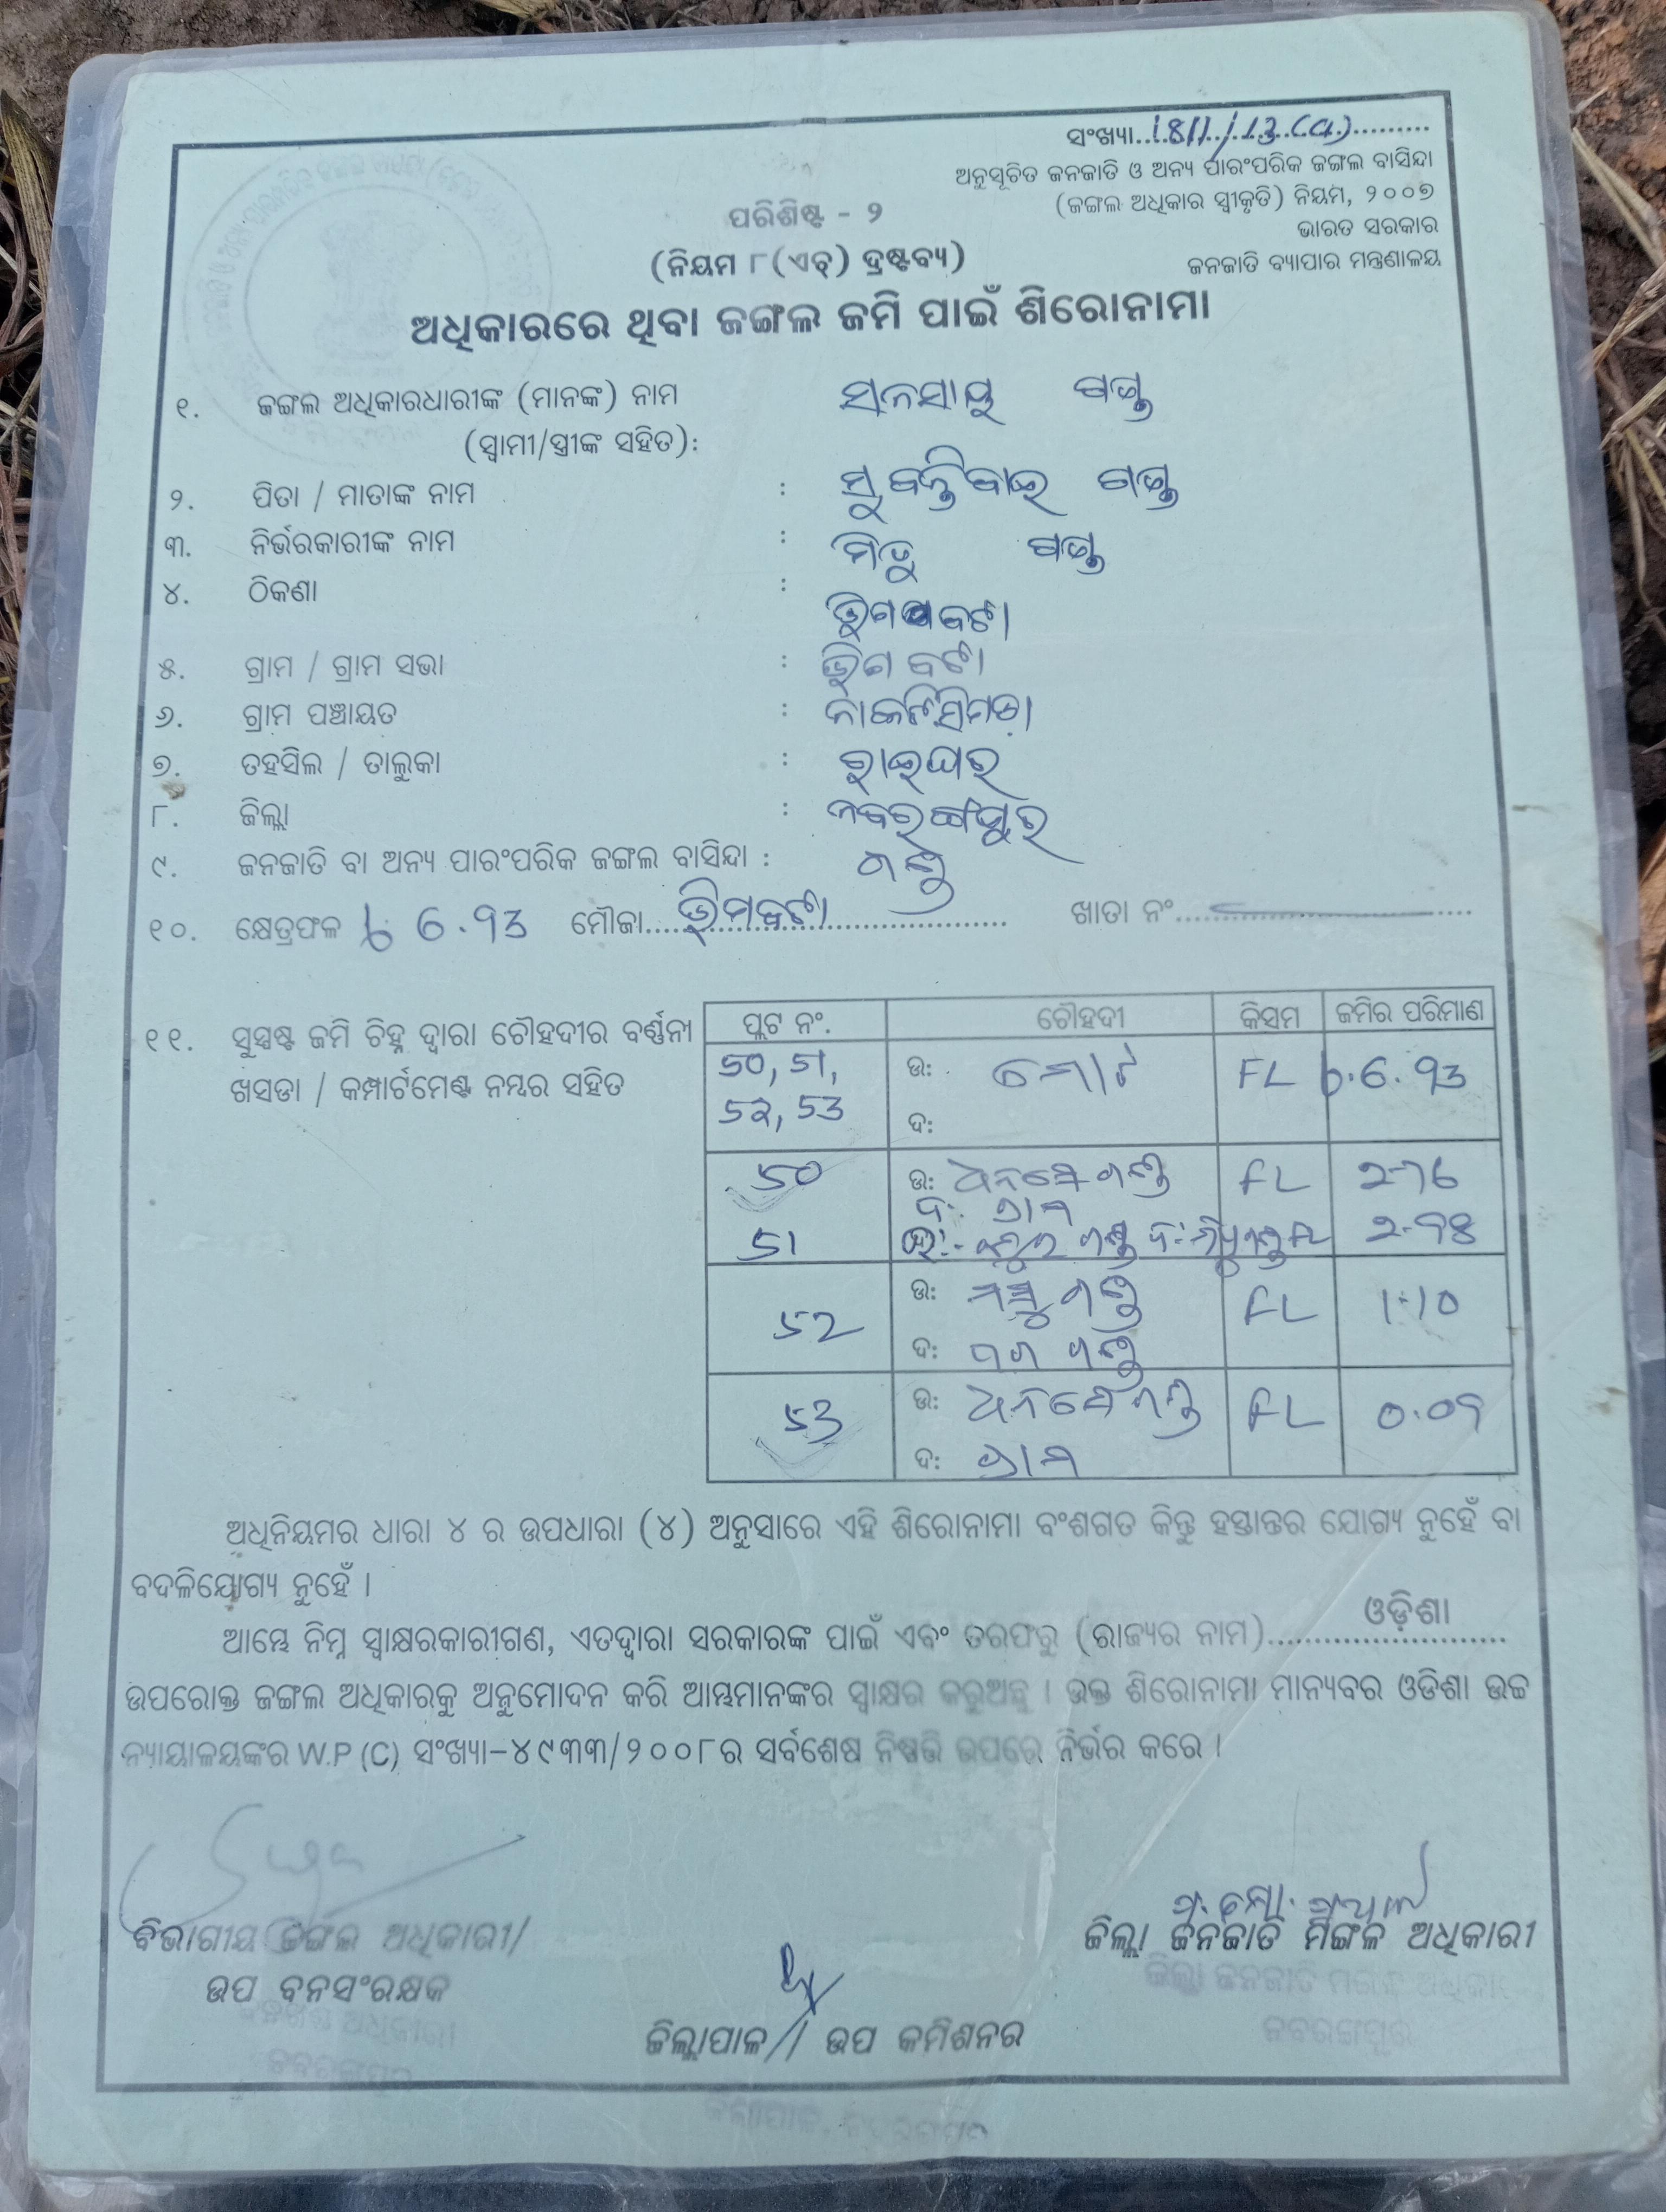 ସଂଖ୍ୟା...1811/13(a)...
ଅନୁସୂଚିତ ଜନଜାତି ଓ ଅନ୍ୟ ପାରଂପରିକ ଜଙ୍ଗଲ ବାସିନ୍ଦା
(ଜଙ୍ଗଲ ଅଧିକାର ସ୍ୱୀକୃତି) ନିୟମ, ୨୦୦୭
ଭାରତ ସରକାର
ଜନଜାତି ବ୍ୟାପାର ମନ୍ତ୍ରଣାଳୟ
ପରିଶିଷ୍ଟ - ୨
(ନିୟମ ୮(ଏଚ୍) ଦ୍ରଷ୍ଟବ୍ୟ)
ଅଧିକାରରେ ଥିବା ଜଙ୍ଗଲ ଜମି ପାଇଁ ଶିରୋନାମା
୧. ଜଙ୍ଗଲ ଅଧିକାରଧାରୀଙ୍କ (ମାନଙ୍କ) ନାମ ସନସାୟ ଗଣ୍ଡ
(ସ୍ୱାମୀ/ସ୍ତ୍ରୀଙ୍କ ସହିତ):
୨. ପିତା / ମାତାଙ୍କ ନାମ : ଗଣ୍ଡ
୩. ନିର୍ଭରକାରୀଙ୍କ ନାମ : ଗଣ୍ଡ
୪. ଠିକଣା :
୫. ଗ୍ରାମ / ଗ୍ରାମ ସଭା :
୬. ଗ୍ରାମ ପଞ୍ଚାୟତ : ନାକଟିସିମଡ଼ା
୭. ତହସିଲ / ତାଲୁକା : ରାଇଘର
୮. ଜିଲ୍ଲା : ନବରଙ୍ଗପୁର
୯. ଜନଜାତି ବା ଅନ୍ୟ ପାରଂପରିକ ଜଙ୍ଗଲ ବାସିନ୍ଦା : ଗଣ୍ଡ
୧୦. କ୍ଷେତ୍ରଫଳ 6.93 ମୌଜା... ଖାତା ନଂ...
୧୧. ସୁସ୍ପଷ୍ଟ ଜମି ଚିହ୍ନ ଦ୍ୱାରା ଚୌହଦୀର ବର୍ଣ୍ଣନା
ଖସଡା / କମ୍ପାର୍ଟମେଣ୍ଟ ନମ୍ବର ସହିତ
ପ୍ଲଟ ନଂ. ଚୌହଦୀ କିସମ ଜମିର ପରିମାଣ
50, 51, ଉ: ମୋଟ FL 6.93
52, 53 ଦ:
50 ଉ: ଗଣ୍ଡ FL 2-76
ଦ:
51 FL
52 ଉ: ଗଣ୍ଡ FL 1.10
ଦ: ଗଣ୍ଡ
53 ଉ: ଗଣ୍ଡ FL 0.09
ଦ:
ଅଧିନିୟମର ଧାରା ୪ ର ଉପଧାରା (୪) ଅନୁସାରେ ଏହି ଶିରୋନାମା ବଂଶଗତ କିନ୍ତୁ ହସ୍ତାନ୍ତର ଯୋଗ୍ୟ ନୁହେଁ ବା
ବଦଳିଯୋଗ୍ୟ ନୁହେଁ ।
ଆମ୍ଭେ ନିମ୍ନ ସ୍ୱାକ୍ଷରକାରୀଗଣ, ଏତଦ୍ୱାରା ସରକାରଙ୍କ ପାଇଁ ଏବଂ ତରଫରୁ (ରାଜ୍ୟର ନାମ)...ଓଡ଼ିଶା...
ଉପରୋକ୍ତ ଜଙ୍ଗଲ ଅଧିକାରକୁ ଅନୁମୋଦନ କରି ଆମ୍ଭମାନଙ୍କର ସ୍ୱାକ୍ଷର କରୁଅଛୁ । ଉକ୍ତ ଶିରୋନାମା ମାନ୍ୟବର ଓଡିଶା ଉଚ୍ଚ
ନ୍ୟାୟାଳୟଙ୍କର W.P (C) ସଂଖ୍ୟା-୪୯୩୩/୨୦୦୮ର ସର୍ବଶେଷ ନିଷ୍ପତ୍ତି ଉପରେ ନିର୍ଭର କରେ ।
ବିଭାଗୀୟ ଜଙ୍ଗଲ ଅଧିକାରୀ/
ଉପ ବନସଂରକ୍ଷକ
ଜିଲ୍ଲାପାଳ // ଉପ କମିଶନର
ଜିଲ୍ଲା ଜନଜାତି ମଙ୍ଗଳ ଅଧିକାରୀ
ଜିଲ୍ଲା ଜନଜାତି ମଙ୍ଗଳ ଅଧିକାରୀ
ନବରଙ୍ଗପୁର